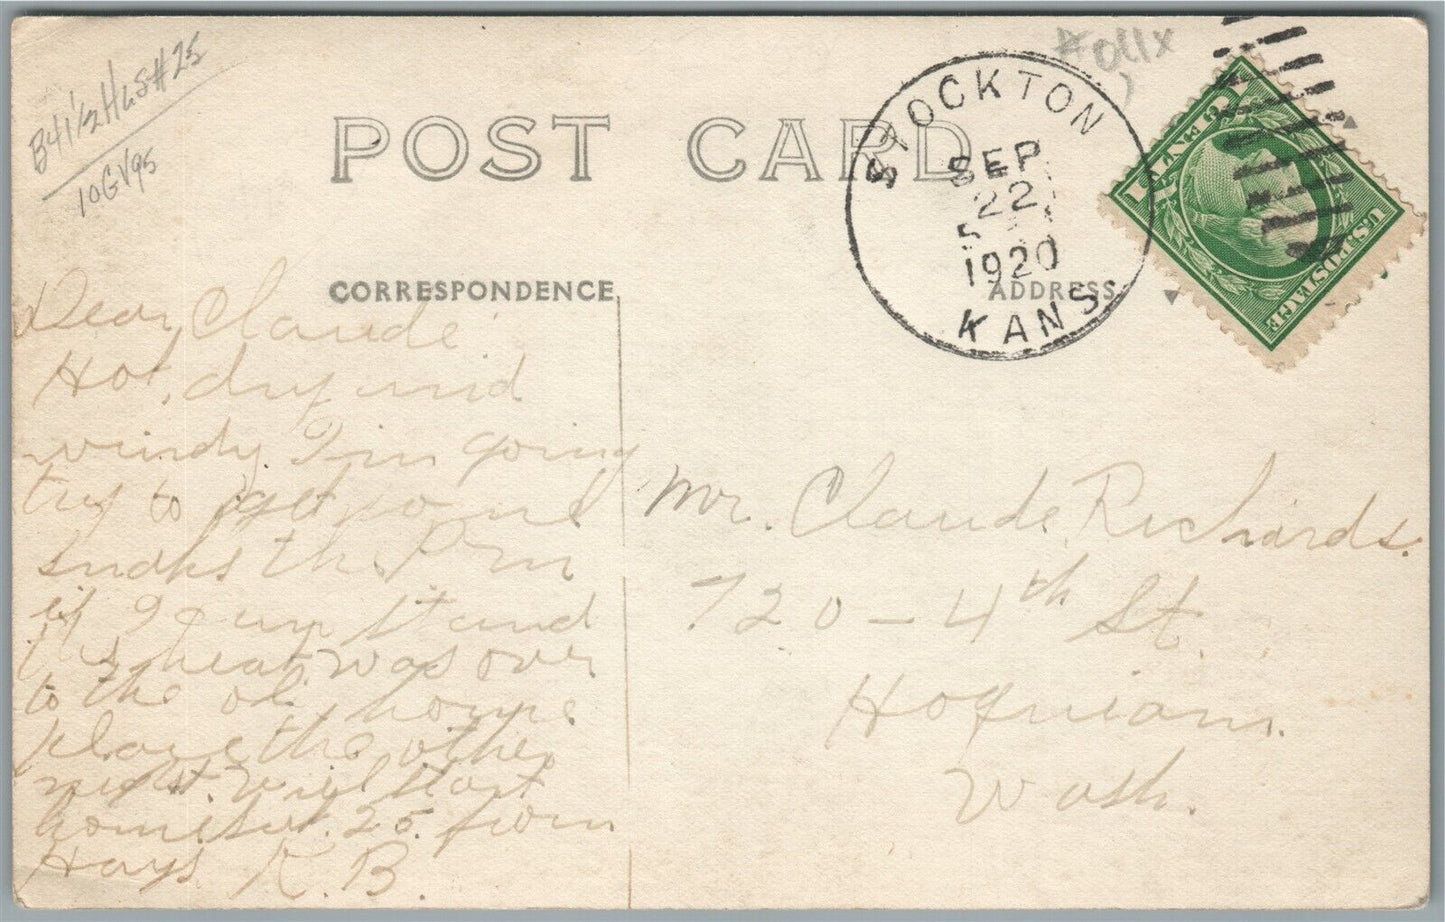 B41½HGS#25
10GV95
POST CARD
STOCKTON
SEP
22
5
1920
KANS
U.S. POSTAGE
CORRESPONDENCE
ADDRESS
Dear Claude
Hot, dry and
windy I'm going
try to get some
snaks this P.m
if I can stand
this heat. was over
to the ol. home
place the other
night. Will start
home Sat. 25 from
Hays K. B.
Mr. Claude Richards.
720-4th St.
Hoquiam.
Wash.